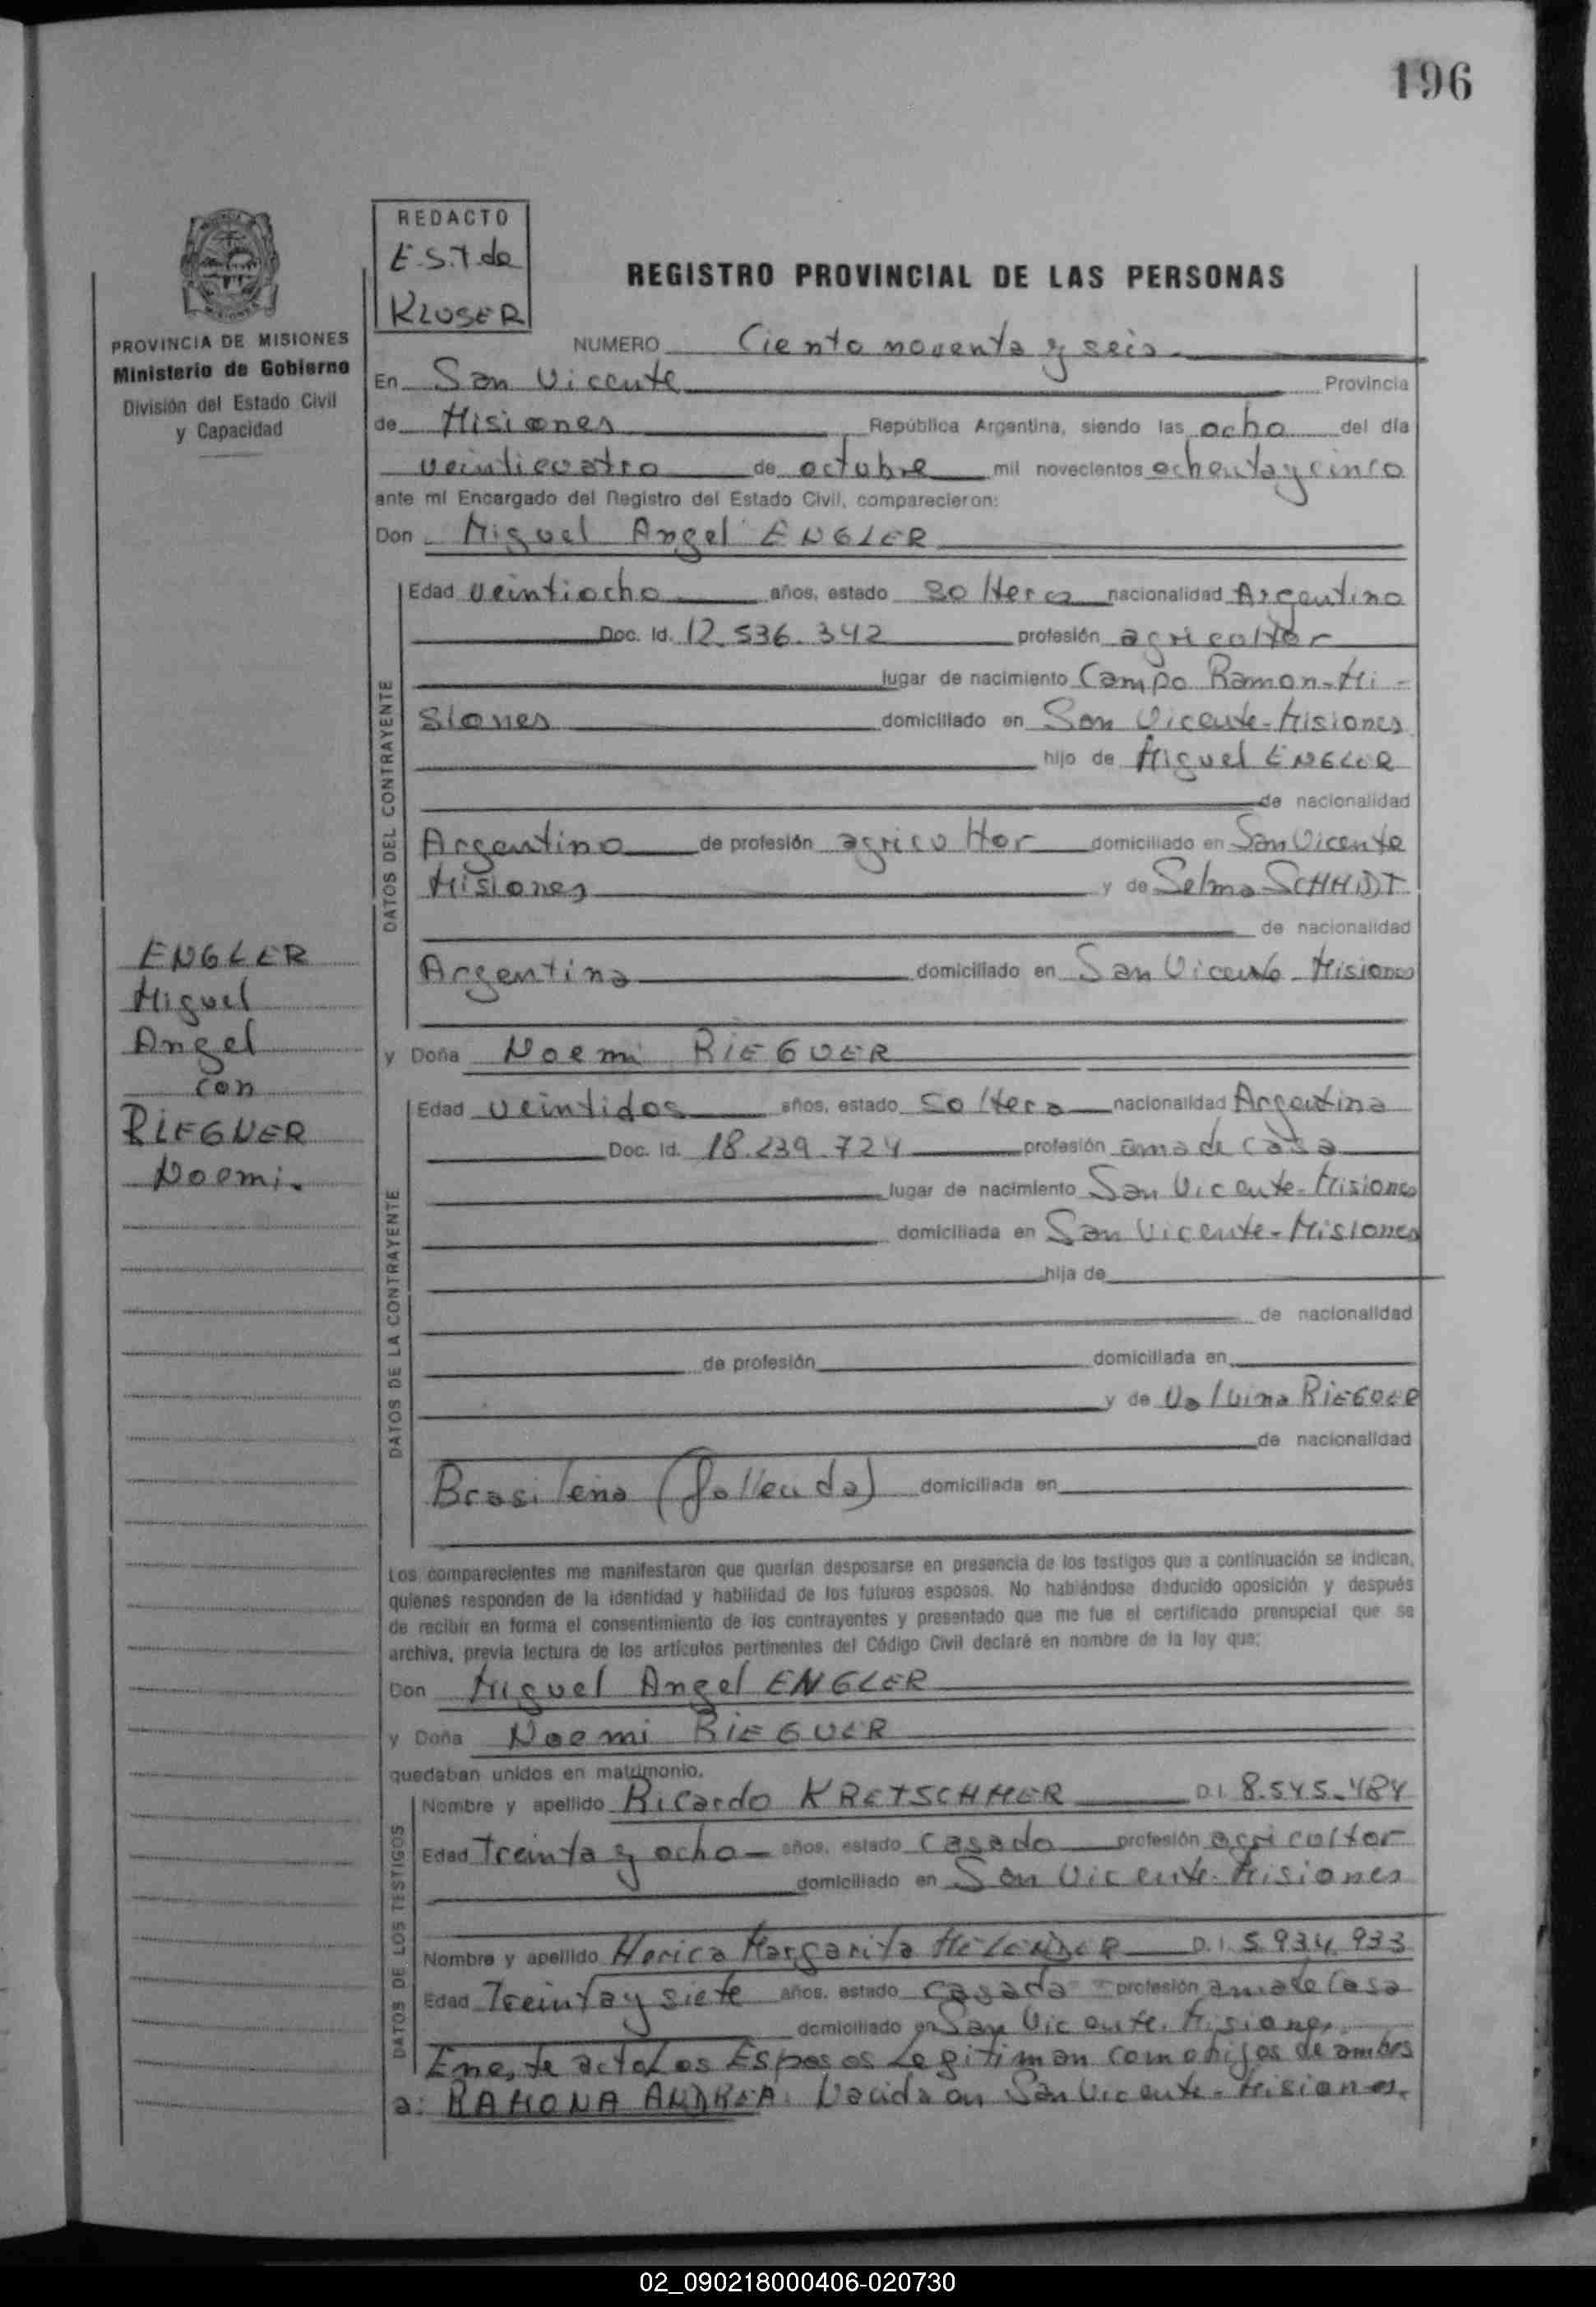 196
REDACTO
E.S.T. de
KLUSER
REGISTRO PROVINCIAL DE LAS PERSONAS
PROVINCIA DE MISIONES
Ministerio de Gobierno
División del Estado Civil
y Capacidad
NUMERO Ciento noventa y seis
En San Vicente Provincia
de Misiones República Argentina, siendo las ocho del día
veinticuatro de octubre mil novecientos ochenta y cinco
ante mí Encargado del Registro del Estado Civil, comparecieron:
Don Miguel Angel ENGLER
DATOS DEL CONTRAYENTE
Edad veintiocho años, estado soltero nacionalidad Argentino
Doc. Id. 12.536.342 profesión agricultor
lugar de nacimiento Campo Ramon-Mi-
siones domiciliado en San Vicente-Misiones
hijo de Miguel ENGLER
de nacionalidad
Argentino de profesión agricultor domiciliado en San Vicente
Misiones y de Selma SCHMIDT
de nacionalidad
Argentina domiciliado en San Vicente Misiones
ENGLER
Miguel
Angel
con
RIEGUER
Noemi.
y Doña Noemi RIEGUER
DATOS DE LA CONTRAYENTE
Edad veintidos años, estado soltera nacionalidad Argentina
Doc. Id. 18.239.724 profesión ama de casa
lugar de nacimiento San Vicente-Misiones
domiciliada en San Vicente-Misiones
hija de
de nacionalidad
de profesión domiciliada en
y de Valvina RIEGUER
de nacionalidad
Brasileña (fallecida) domiciliada en
Los comparecientes me manifestaron que querían desposarse en presencia de los testigos que a continuación se indican,
quienes responden de la identidad y habilidad de los futuros esposos. No habiéndose deducido oposición y después
de recibir en forma el consentimiento de los contrayentes y presentado que me fue el certificado prenupcial que se
archiva, previa lectura de los artículos pertinentes del Código Civil declaré en nombre de la ley que:
Don Miguel Angel ENGLER
y Doña Noemi RIEGUER
quedaban unidos en matrimonio.
DATOS DE LOS TESTIGOS
Nombre y apellido Ricardo KRETSCHMER D.I. 8.545.484
Edad Treinta y ocho años, estado casado profesión agricultor
domiciliado en San Vicente-Misiones
Nombre y apellido Margarita D.I. 5.934.933
Edad Treinta y siete años, estado casada profesión ama de casa
domiciliado en San Vicente. Misiones
En este acto Los Esposos Legitiman como hijos de ambos
a: RAMONA ANDREA: Nacida en San Vicente-Misiones.
02_090218000406-020730